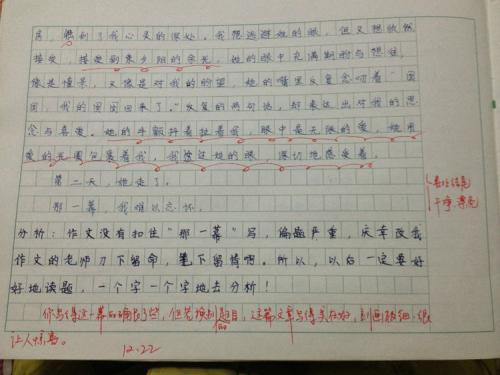 后，照到了我心灵的深处。我想逃避她的眼，但又想欣然
接受，接受到来夕阳的余光，她的眼中充满期盼与想往，
像是憧景，又像是对我的盼望，她的嘴里反复念叨着“园
园，我的园园回来了。”反复的两句话，却表达出对我的思
念与喜爱。她的手颤抖着拉着我，眼中是无限的爱，她用
爱的光圈包裹着我，我接过她的眼，深切地感受着。
第二天，她走了。
那一幕，我难以忘怀。
善的结尾
干净 漂亮
分析：作文没有扣住“那一幕”写，偏题严重，庆幸改我
作文的老师刀下留命，笔下留情啊。所以，以后一定要好
好地读题，一个字一个字地去分析！
你写得这一幕的确长了些，但若换别的题目，这篇文章写得实在好，刻画很细，很
让人惊喜。
12.22